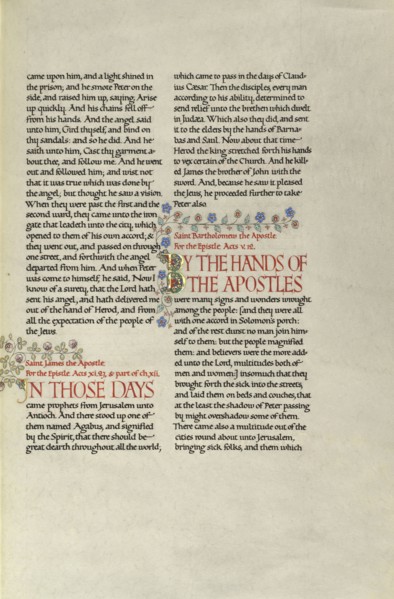 came upon him, and a light shined in
the prison; and he smote Peter on the
side, and raised him up, saying, Arise
up quickly. And his chains fell off
from his hands. And the angel said
unto him, Gird thyself, and bind on
thy sandals: and so he did. And he
saith unto him, Cast thy garment a-
bout thee, and follow me. And he went
out and followed him; and wist not
that it was true which was done by
the angel; but thought he saw a vision.
When they were past the first and the
second ward, they came unto the iron
gate that leadeth unto the city, which
opened to them of his own accord; &
they went out, and passed on through
one street, and forthwith the angel
departed from him. And when Peter
was come to himself, he said, Now I
know of a surety, that the Lord hath
sent his angel, and hath delivered me
out of the hand of Herod, and from
all the expectation of the people of
the Jews.
Saint James the Apostle.
For the Epistle. Acts xi. 27, & part of ch. xii.
IN THOSE DAYS
came prophets from Jerusalem unto
Antioch. And there stood up one of
them named Agabus, and signified
by the Spirit, that there should be
great dearth throughout all the world;
which came to pass in the days of Claud-
ius Cæsar. Then the disciples, every man
according to his ability, determined to
send relief unto the brethren which dwelt
in Judæa. Which also they did, and sent
it to the elders by the hands of Barna-
bas and Saul. Now about that time
Herod the king stretched forth his hands
to vex certain of the Church. And he kill-
ed James the brother of John with the
sword. And, because he saw it pleased
the Jews, he proceeded further to take
Peter also.
Saint Bartholomew the Apostle.
For the Epistle Acts v. 12.
BY THE HANDS OF
THE APOSTLES
were many signs and wonders wrought
among the people: (and they were all
with one accord in Solomon's porch:
and of the rest durst no man join him-
self to them: but the people magnified
them: and believers were the more add-
ed unto the Lord, multitudes both of
men and women:) insomuch that they
brought forth the sick into the streets,
and laid them on beds and couches, that
at the least the shadow of Peter passing
by might overshadow some of them.
There came also a multitude out of the
cities round about unto Jerusalem,
bringing sick folks, and them which